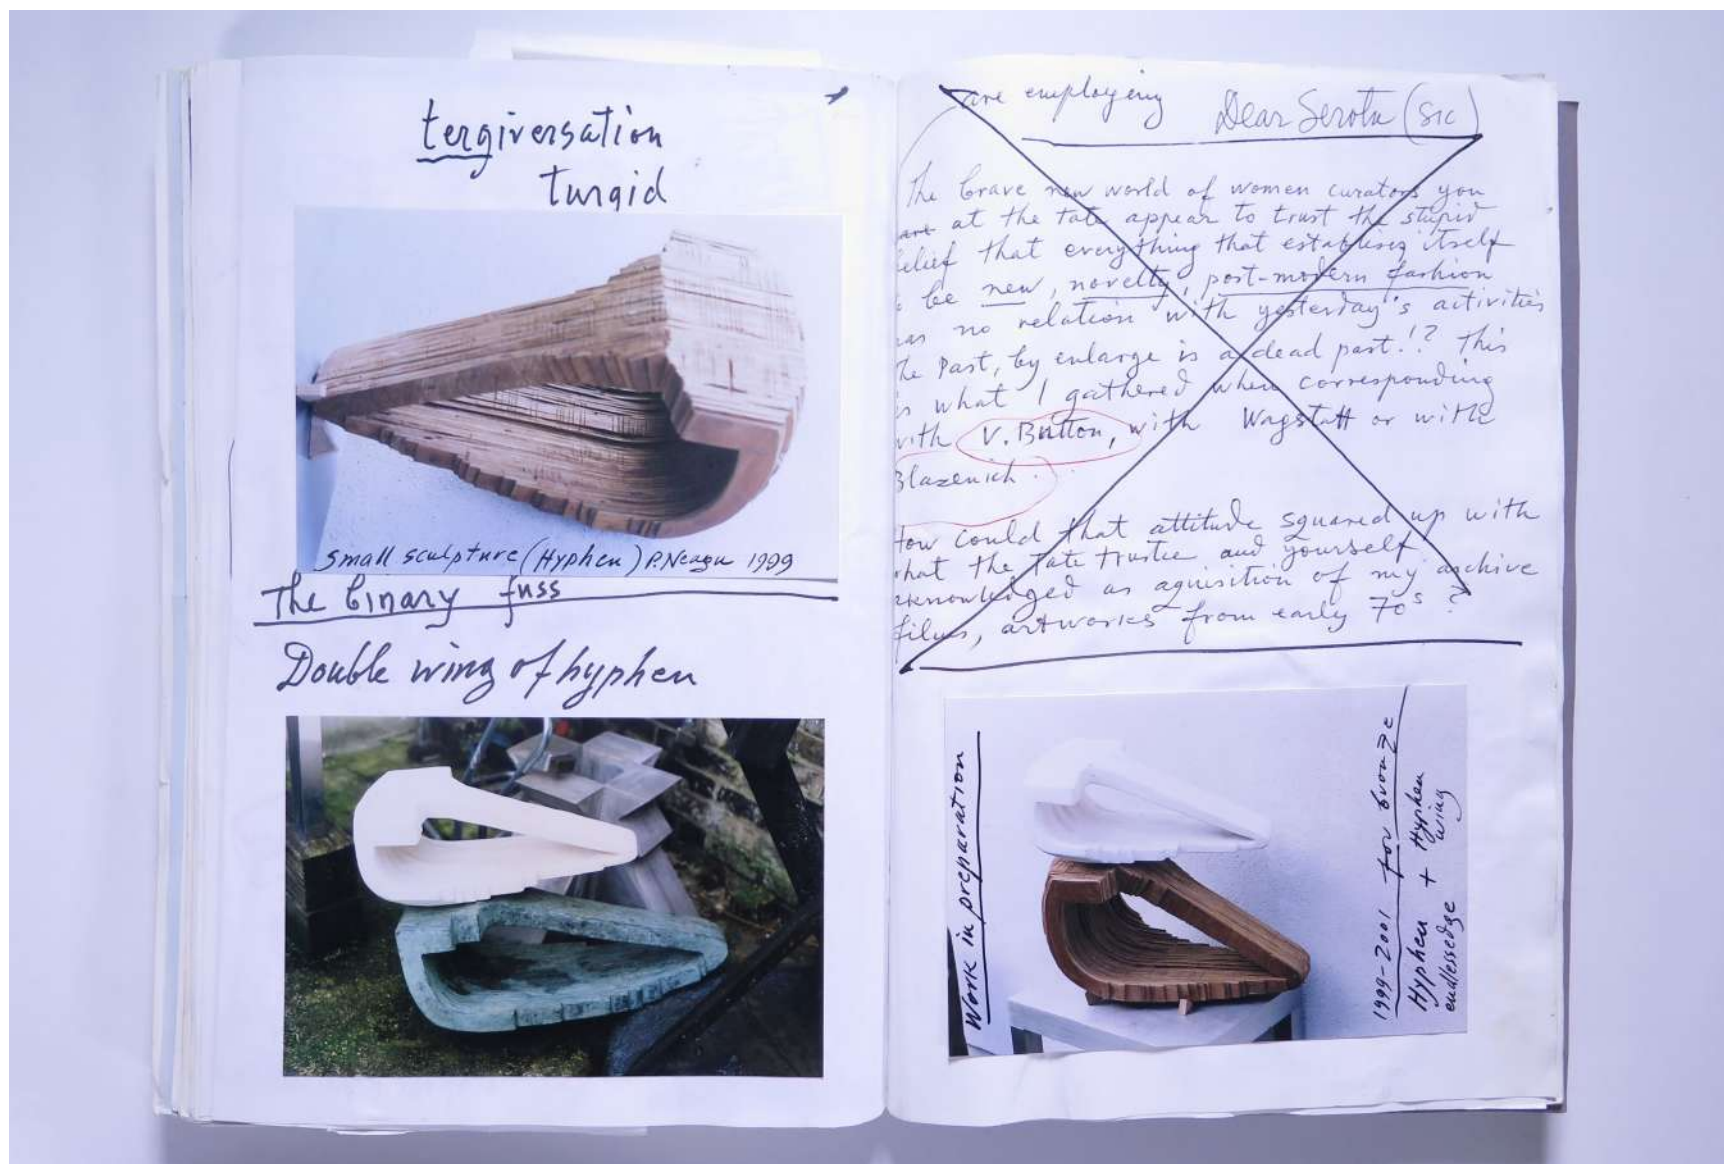 tergiversation
turgid
small sculpture (Hyphen) P. Neagu 1999
The binary fuss
Double wing of hyphen
are employing Dear Serota (sic)
The brave new world of women curators you
are at the tate appear to trust the stupid
elief that everything that establises itself
be new, novelty, post-modern fashion
as no relation with yesterday's activities
he Past, by enlarge is a dead part!? This
s what I gathered when corresponding
with V. Button, with Wagstaff or with
Blazenich.
How could that attitude squared up with
hat the Tate trustee and yourself,
aknowledged as aguisition of my archive
films, artworks from early 70s?
Work in preparation
1999-2001 for bronze
Hyphen + Hyphen
endlessedge wing